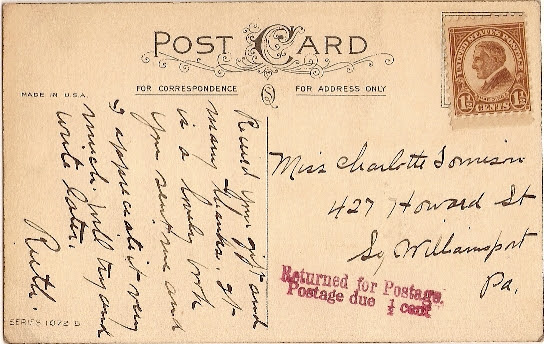 POST CARD
FOR CORRESPONDENCE
FOR ADDRESS ONLY
MADE IN U.S.A.
UNITED STATES POSTAGE
1½ CENTS 1½
Recived your gift and
many thanks. It
is a lovely book
you sent me and
I appreciate it very
much. Will try and
write later.
Ruth.
Miss Charlotte Tomison
427 Howard St
So Williamsport
Pa.
Returned for Postage
Postage due ½ cent
SERIES 1072 B